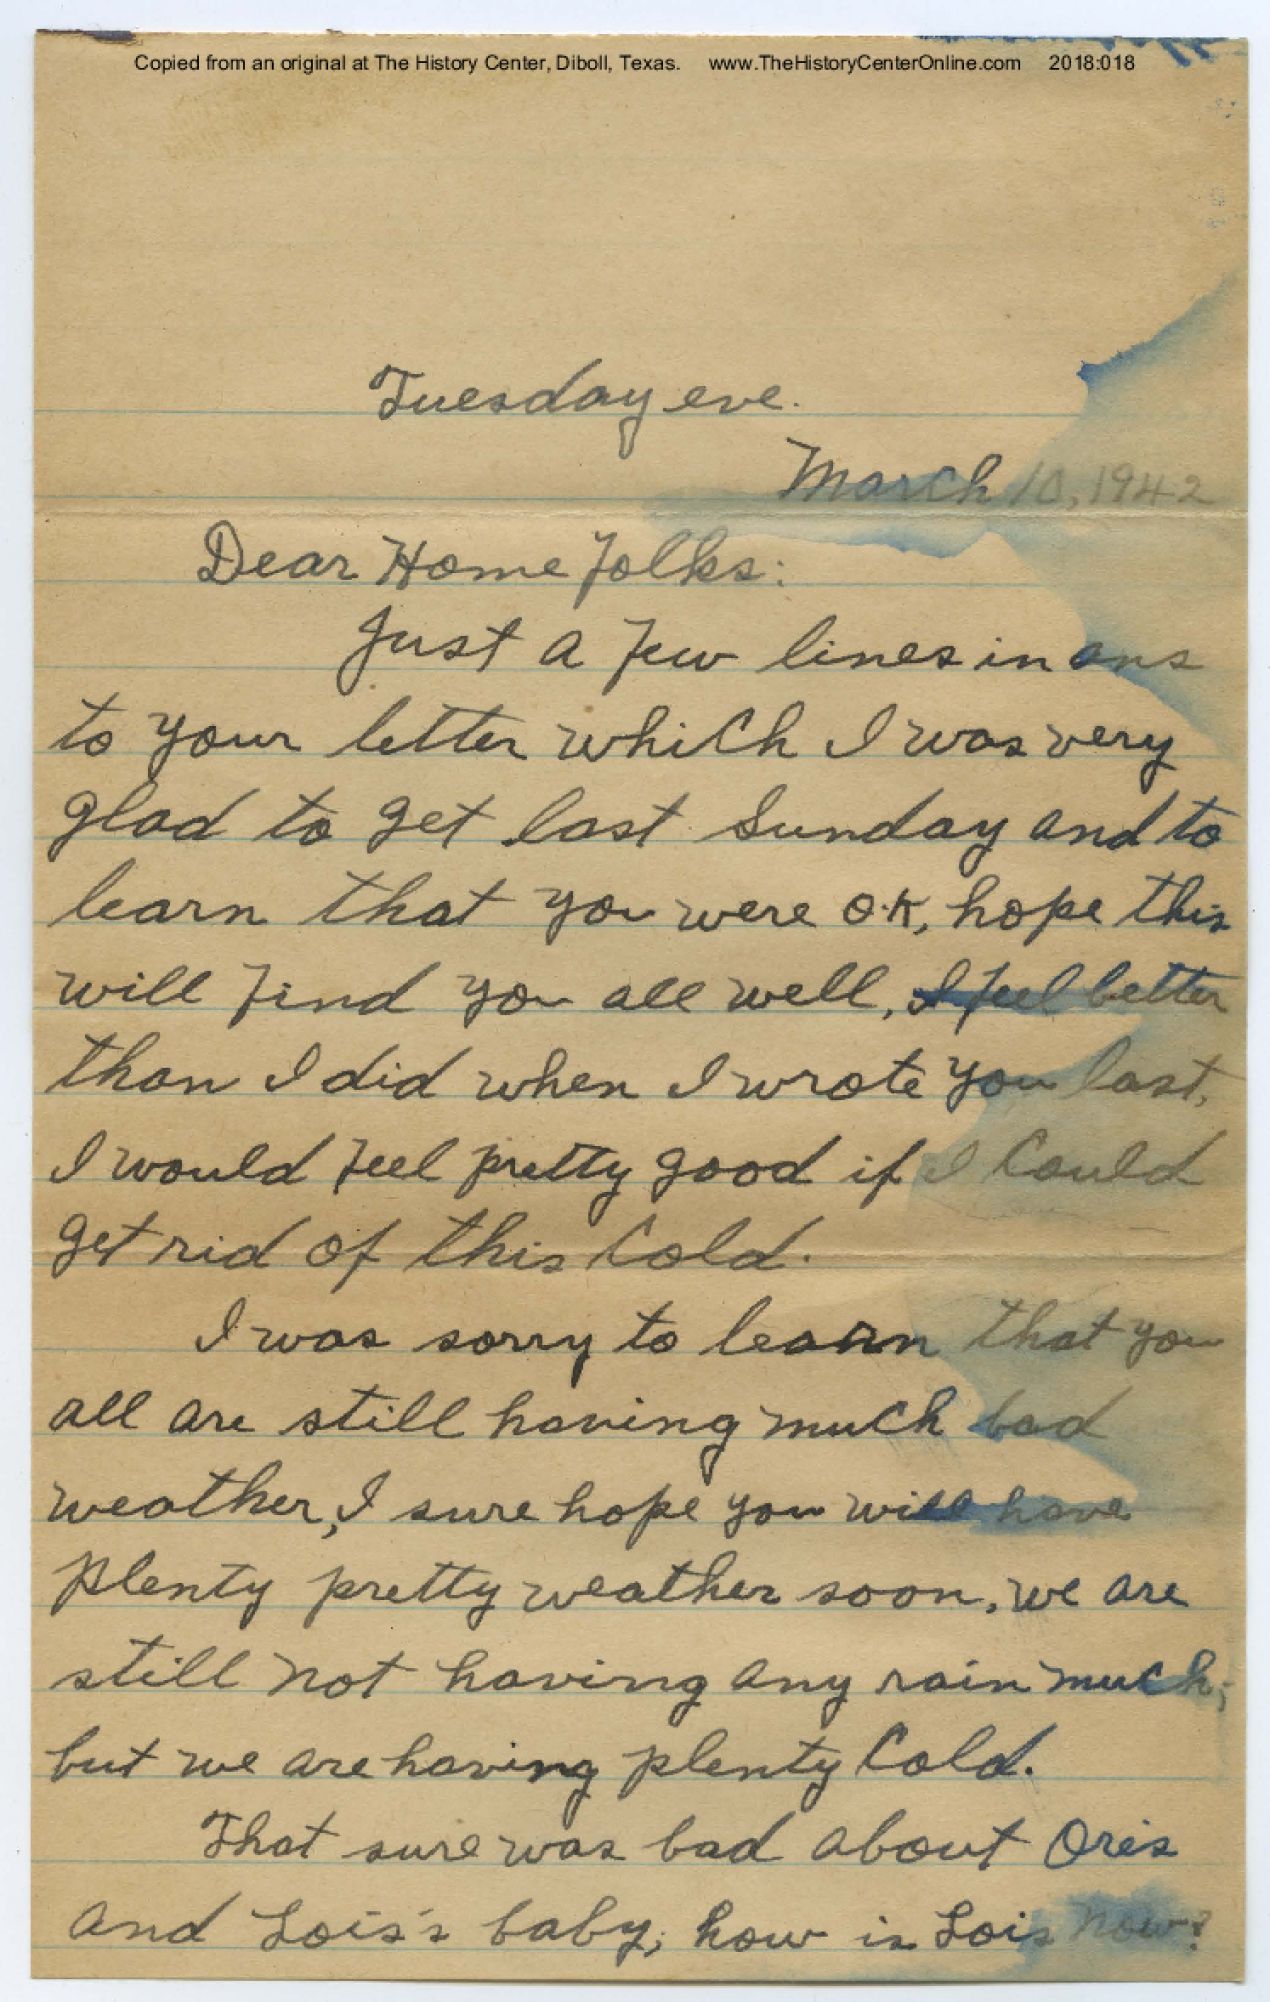 Copied from an original at The History Center, Diboll, Texas. www.TheHistoryCenterOnline.com 2018:018
Tuesday eve.
March 10, 1942
Dear Home Folks:
Just a few lines in ans
to your letter which I was very
glad to get last Sunday and to
learn that you were O.K, hope this
will find you all well, I feel better
than I did when I wrote you last,
I would feel pretty good if I Could
get rid of this Cold.
I was sorry to learn that you
all are still having much bad
weather, I sure hope you will have
plenty pretty weather soon, we are
still not having any rain much;
but we are having plenty Cold.
That sure was bad about Ore's
and Lois's baby, how is Lois now?